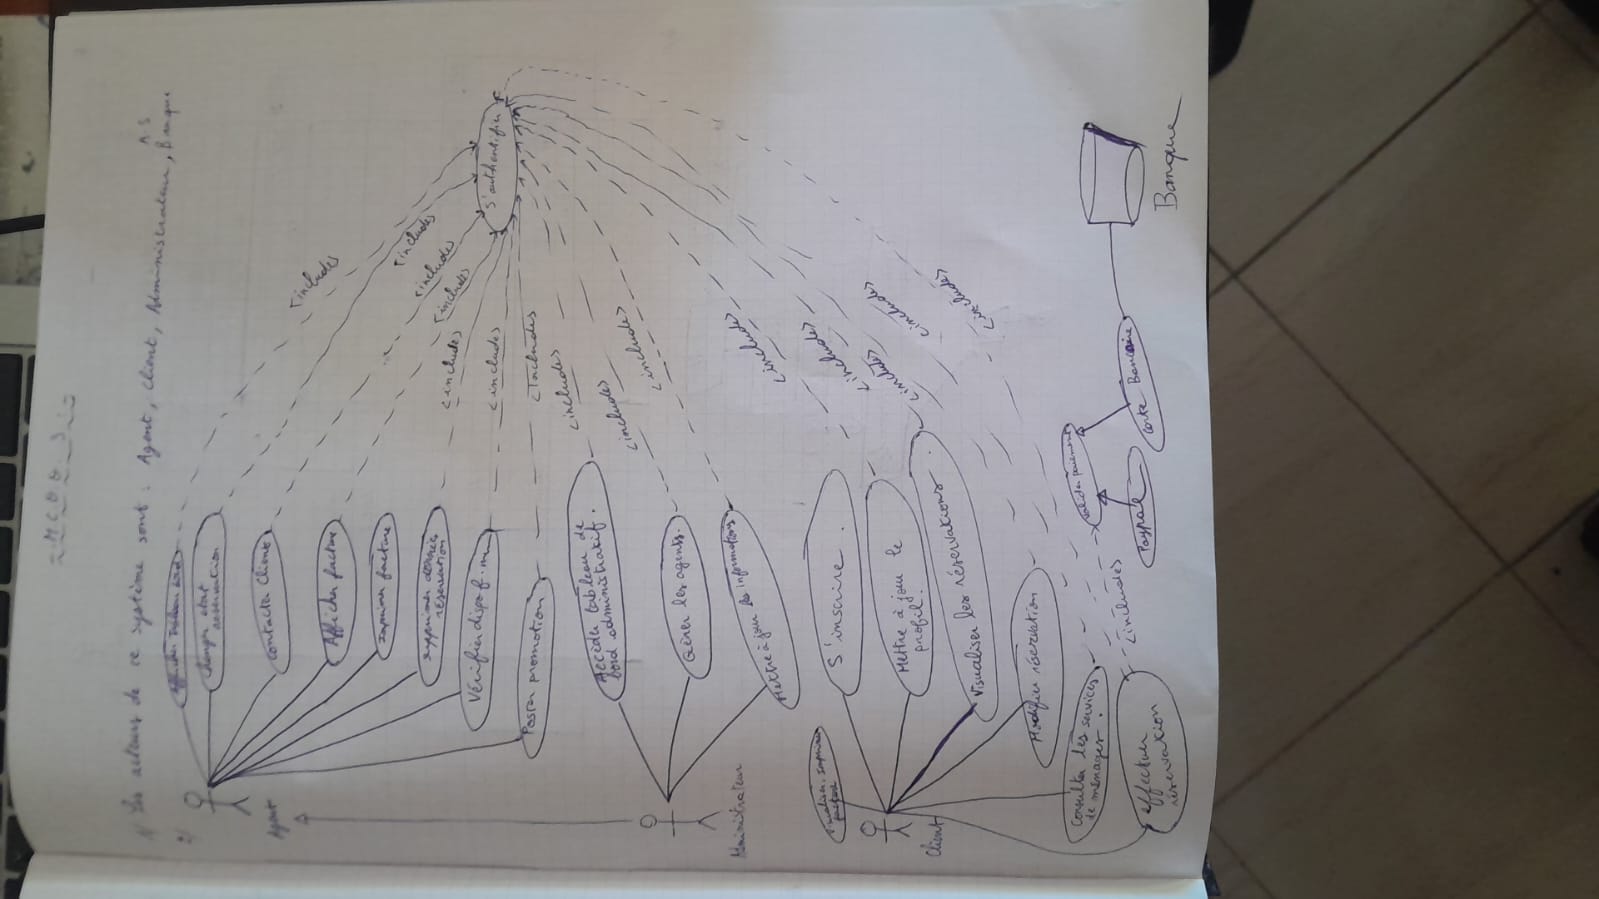 1) Les acteurs de ce système sont : Agent, client, Administrateur, Banque
A.S
2)
changer état
réservation
contacter client
Afficher facture
imprimer facture
supprimer données
réservation
Vérifier dispof.
Poster promotion
Agent
Accéder tableau de
bord administratif.
Gérer les agents.
Mettre à jour les informations
Administrateur
S'inscrire.
Mettre à jour le
profil.
Visualiser les réservations.
Modifier réservation
Consulter les services
de ménager.
effectuer
réservation
Client
S'authentifier
<includes
<includes
<includes
<includes
<includes
<includes
<includes
<includes>
<includes>
<include>
<include>
<include>
<include>
<include>
<includes>
valider paiement
Paypal
carte Bancaire
Banque